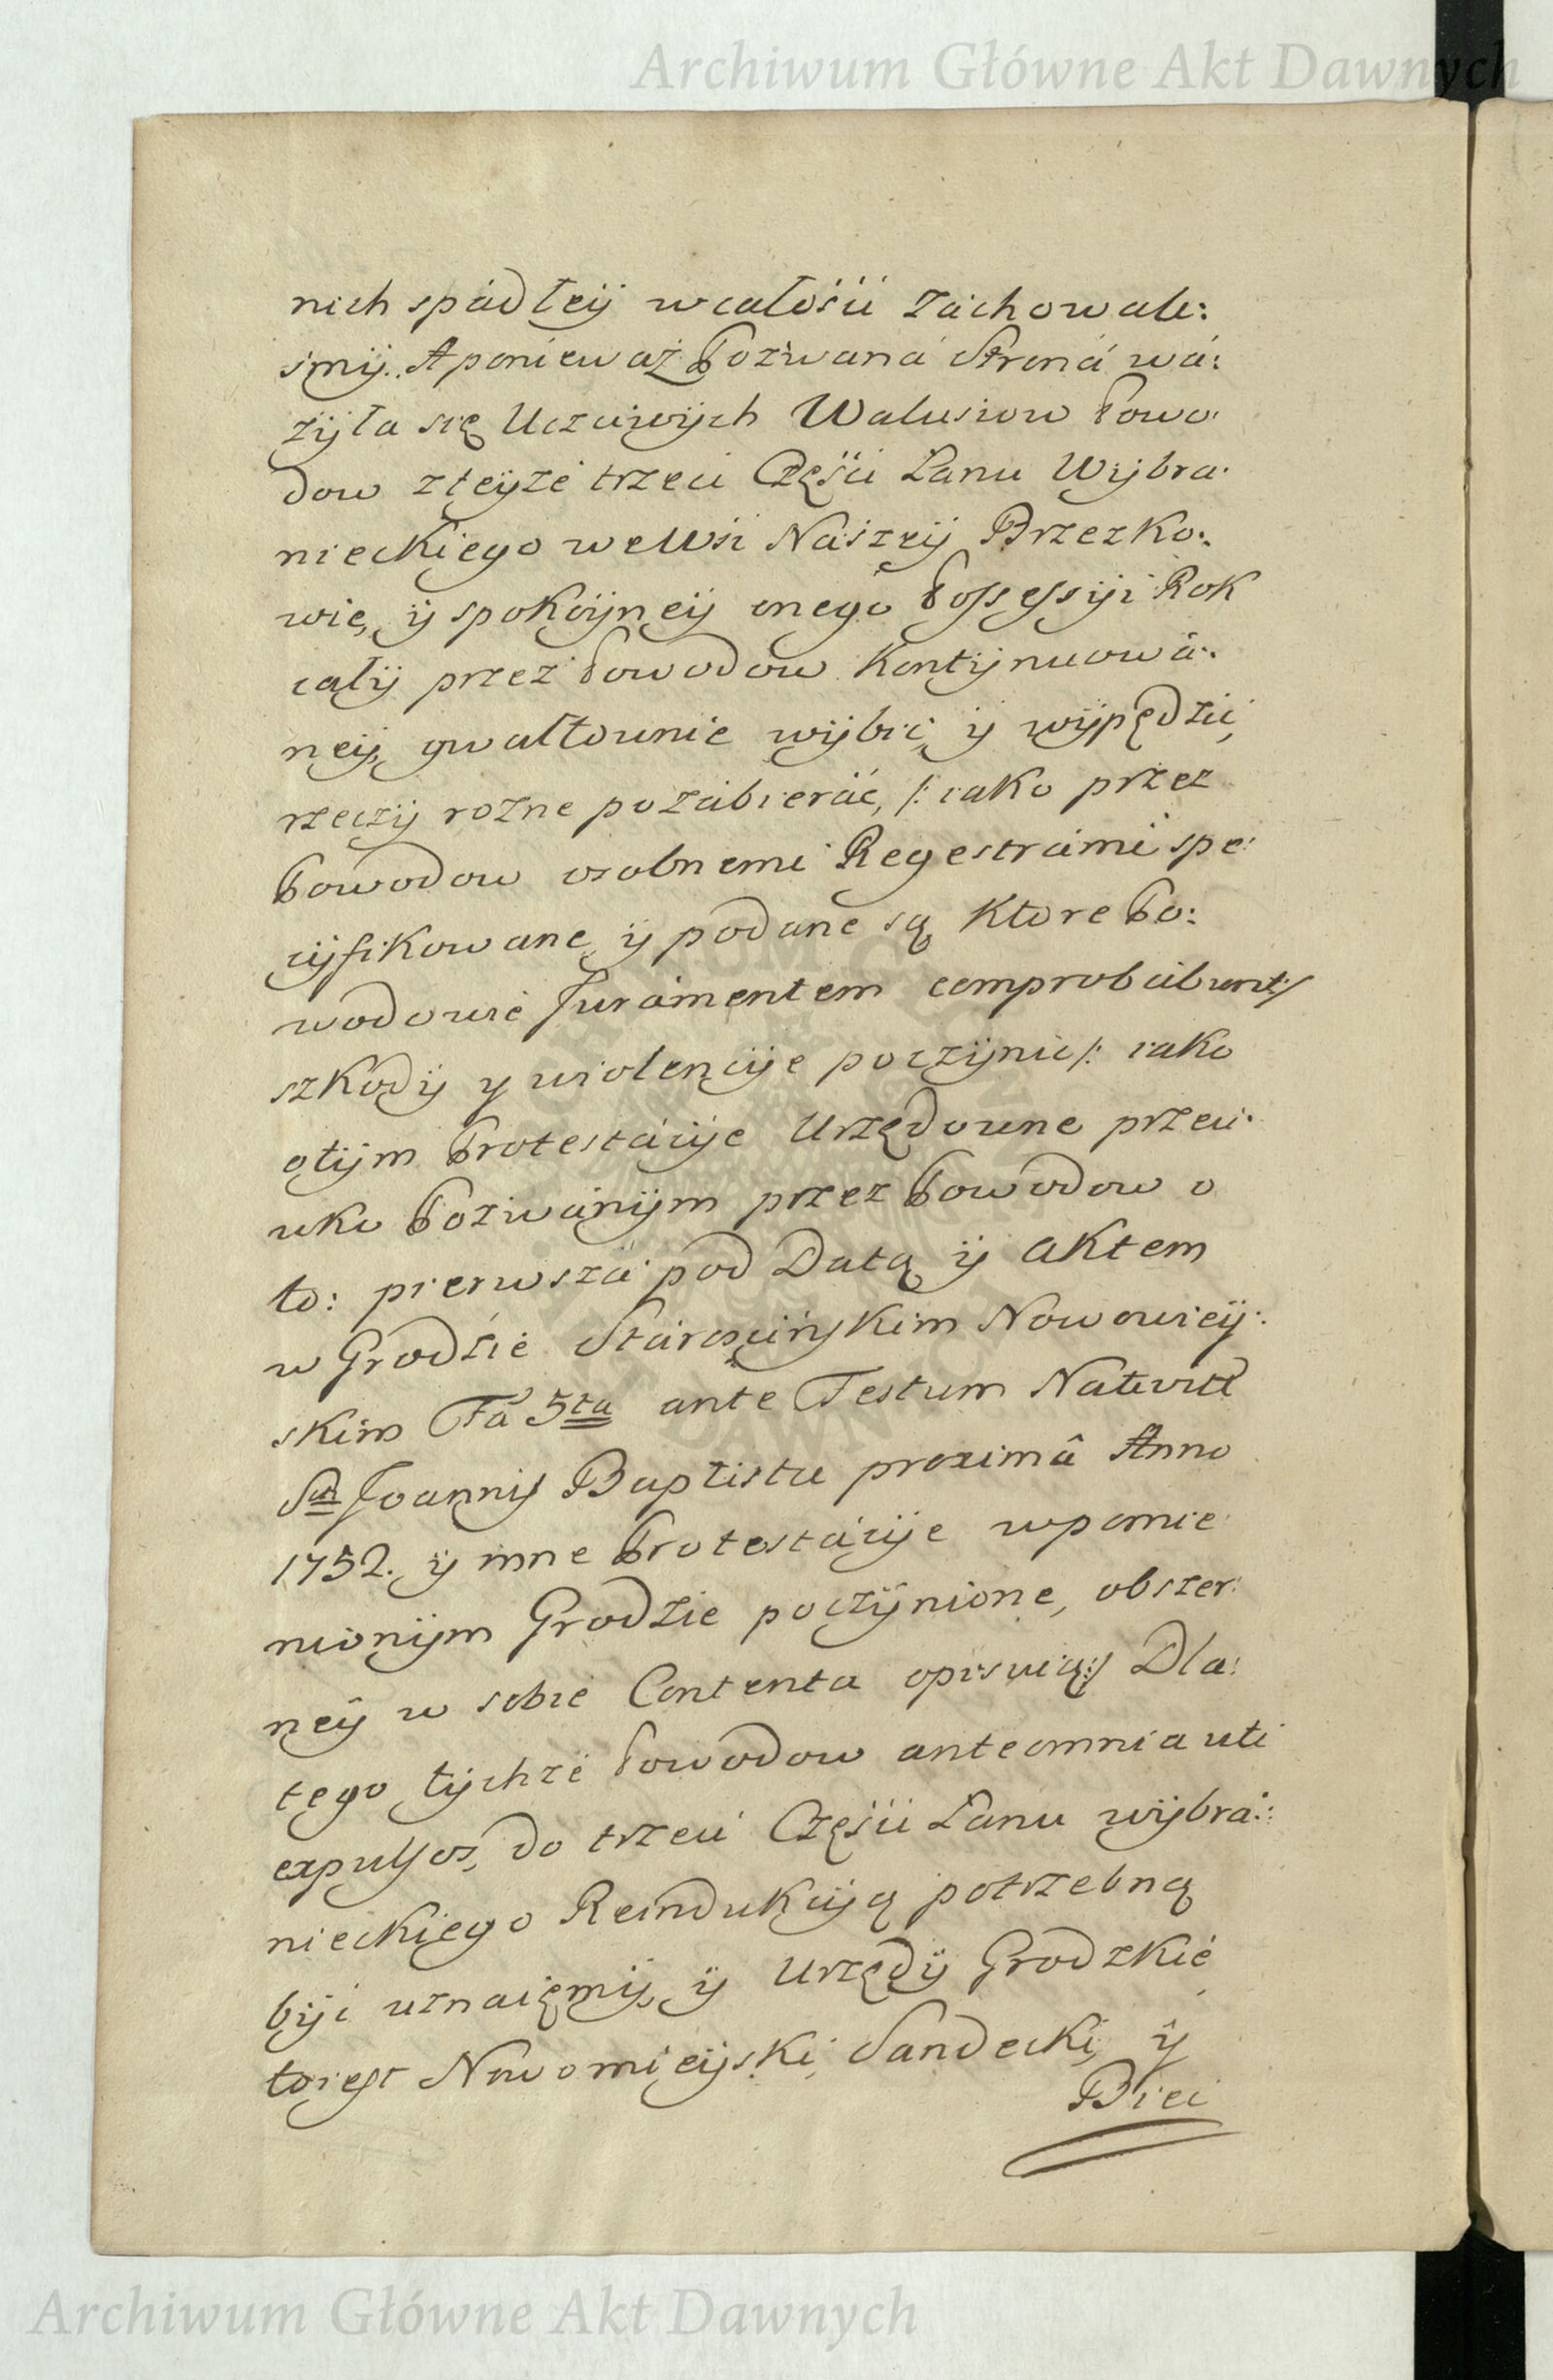 Archiwum Główne Akt Dawnych
nich spádłeÿ wcałośći záchowali:
śmÿ. A ponieważ Pozwaná Stroná wá:
żÿła się Uczciwÿch Walusiow Powo:
dow zteÿże trzeci Częśći Łanu Wÿbra:
nieckiego we Wśi Nászeÿ Brzezko:
wie, ÿ spokoÿneÿ onego Possessÿi Rok
całÿ przez Powodow Kontÿnuowá:
neÿ, gwałtownie wÿbić, ÿ wÿpędźić,
rzeczÿ rozne pozábieráć, /: iako przez
Powodow osobnemi Regestrámi spe:
cÿfikowane ÿ podane są, Ktore Po:
wodowie Juramentem comprobabunt:/
szkodÿ y violencÿe poczÿnić /: iako
otÿm Protestácÿe Urzędowne przeci:
wko Pozwánÿm przez Powodow o
to: pierwsza pod Datą ÿ Aktem
w Grodźie Stárościńskim Nowomieÿ:
skim Fa 5ta ante Festum Nativitt
Sti Joannis Baptistæ proximâ Anno
1752. ÿ inne Protestácÿe wpomie:
nionÿm Grodźie poczÿnione, obszer:
neÿ w sobie Contenta opisuią:/ Dla:
tego tÿchże Powodow anteomnia uti
expulsos, do trzeci Częśći Łanu wÿbrá:
nieckiego Reindukcÿą potrzebną
bÿć uznaięmÿ, ÿ Urzędÿ Grodzkie
toiest Nowomieÿski, Sandecki, ÿ
Biec
Archiwum Główne Akt Dawnych